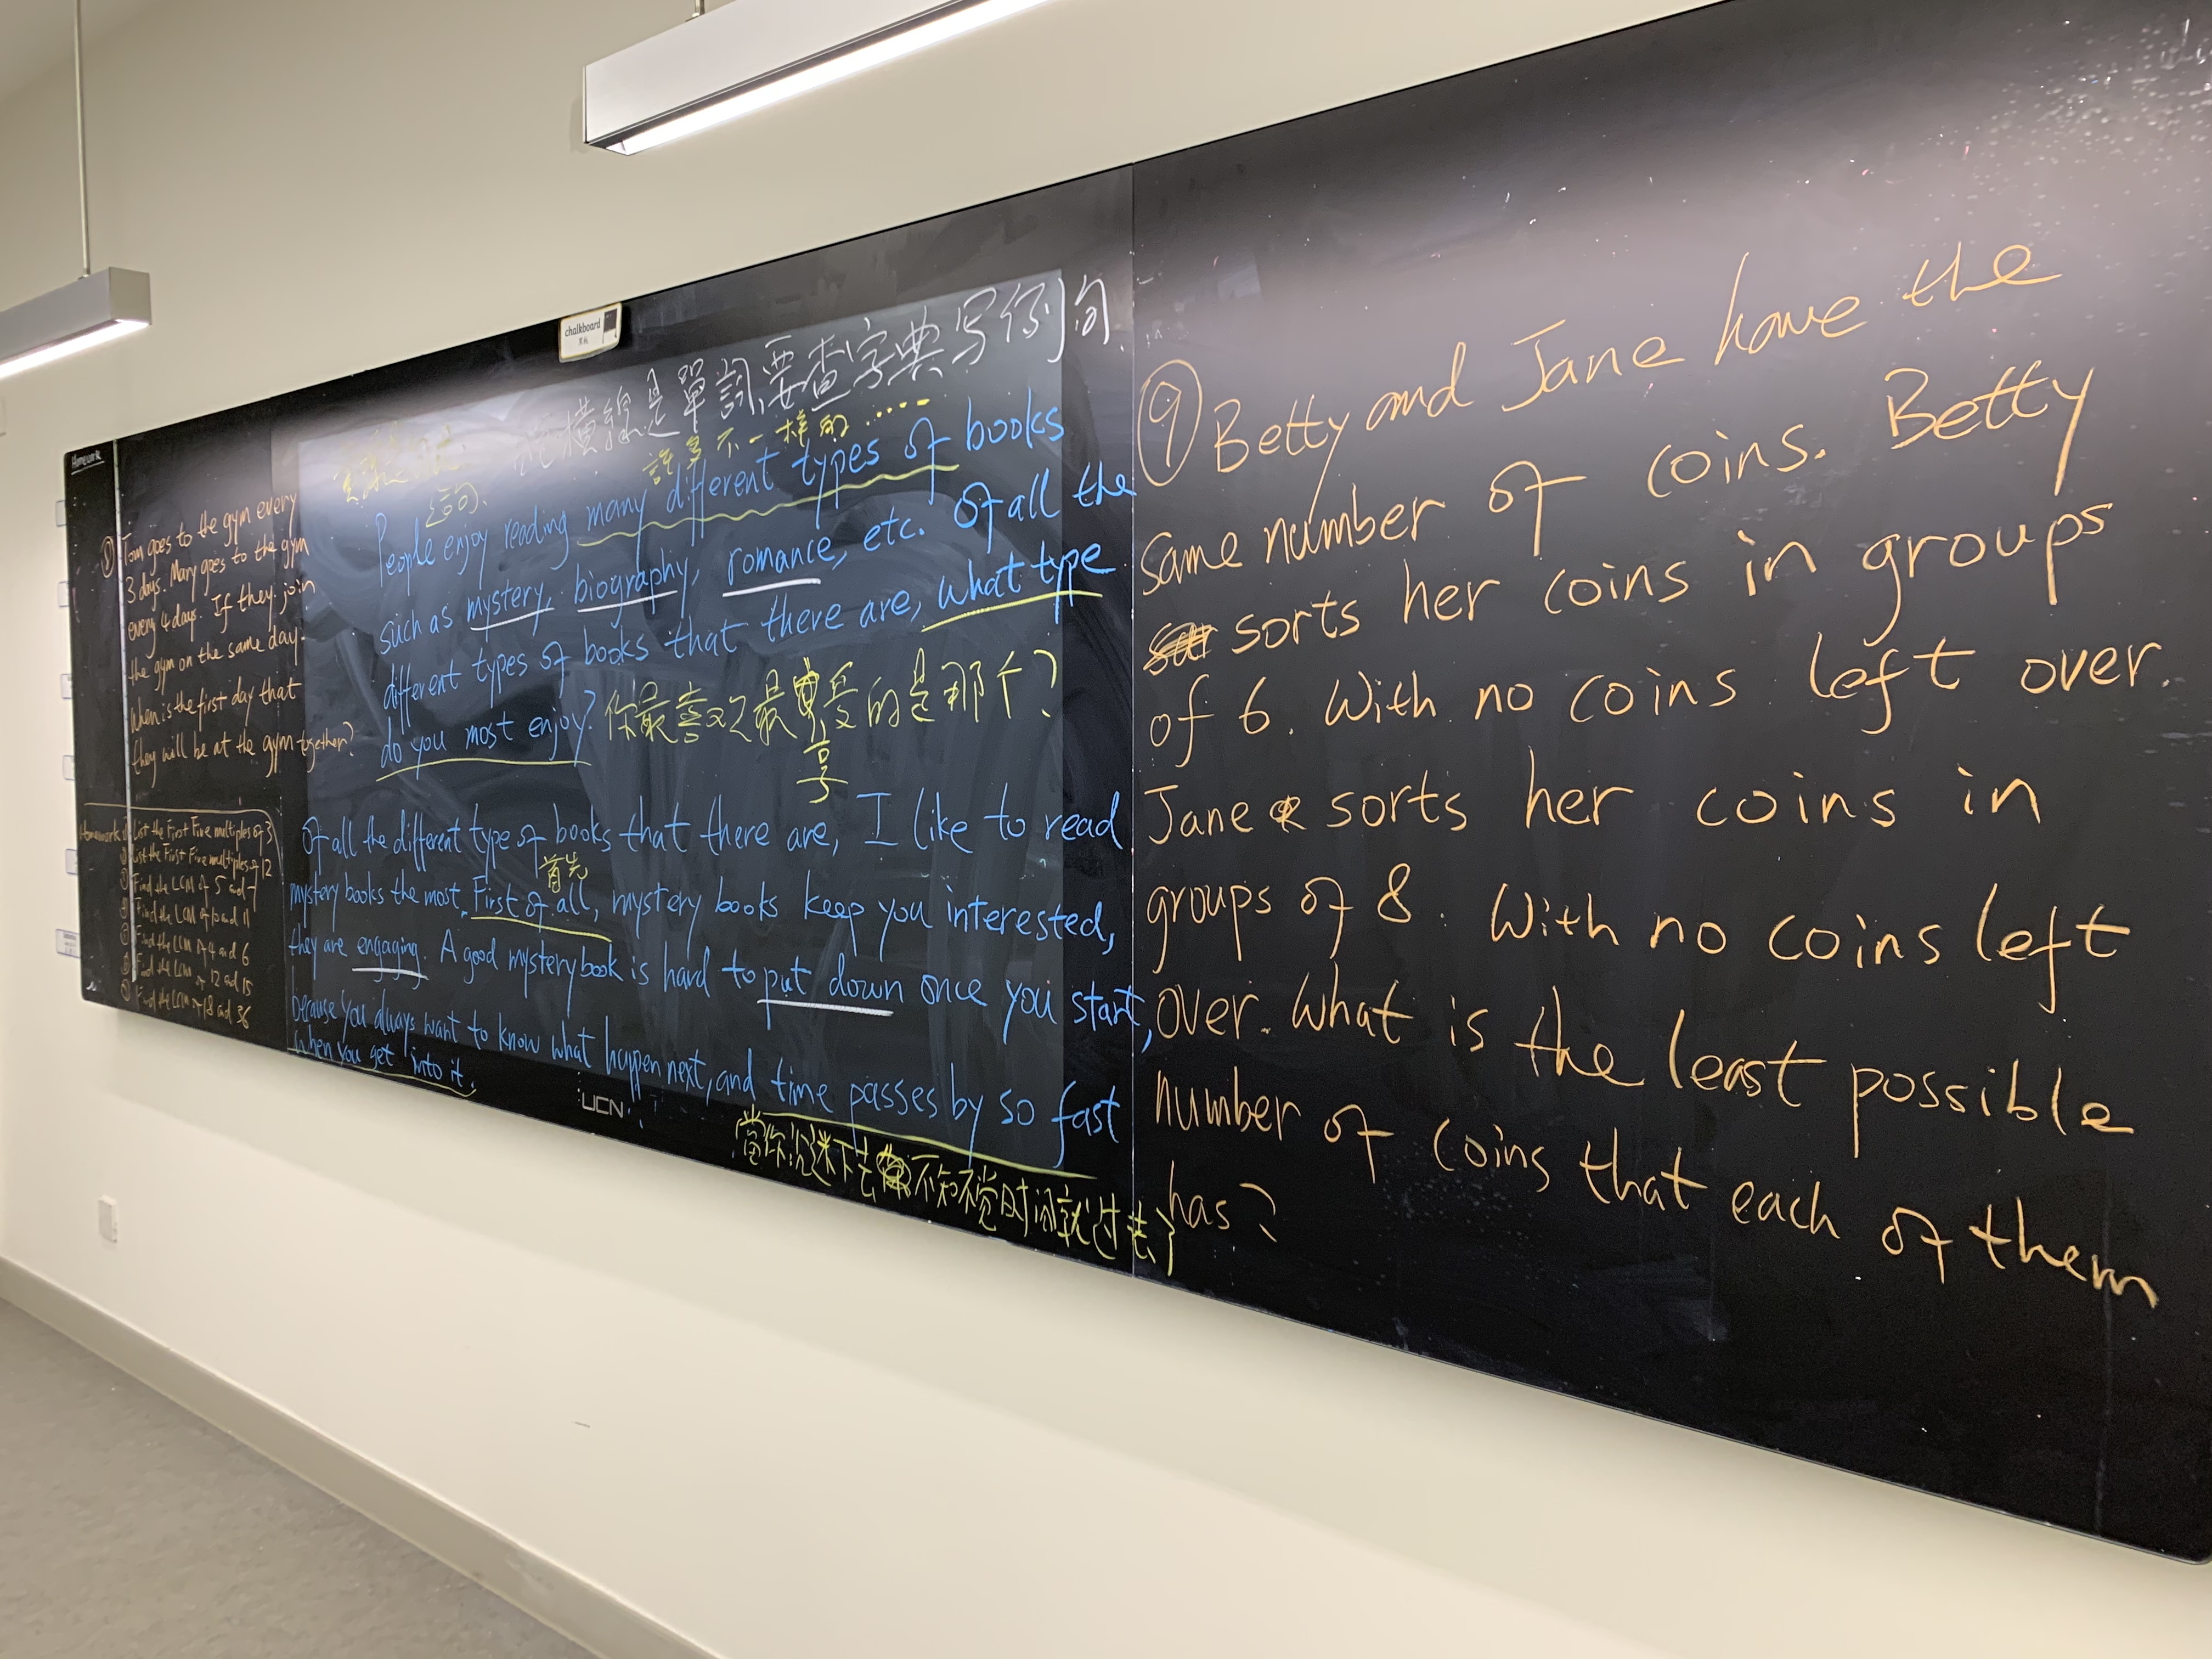 Homework
⑧ Tom goes to the gym every
3 days. Mary goes to the gym
every 4 days. If they join
the gym on the same day.
When is the first day that
they will be at the gym together?
Homework
① List the First Five multiples of 3
② List the First Five multiples of 12
③ Find the LCM of 5 and 7
④ Find the LCM of 10 and 11
⑤ Find the LCM of 4 and 6
⑥ Find the LCM of 12 and 15
⑦ Find the LCM of 18 and 36
chalkboard
橫線是單詞,要查字典写例句.
造句.
許多不一样的....
People enjoy reading many different types of books
such as mystery, biography, romance, etc. Of all the
different types of books that there are, what type
do you most enjoy? 你最喜欢最享受的是那个?
享
Of all the different type of books that there are, I like to read
首先
mystery books the most. First of all, mystery books keep you interested,
they are engaging. A good mystery book is hard to put down once you start,
because you always want to know what happen next, and time passes by so fast
when you get into it.
UCN
當你沉迷下去不知不觉时间就过去
⑨ Betty and Jane have the
same number of coins. Betty
sorts her coins in groups
of 6. With no coins left over.
Jane sorts her coins in
groups of 8. With no coins left
over. What is the least possible
number of coins that each of them
has?